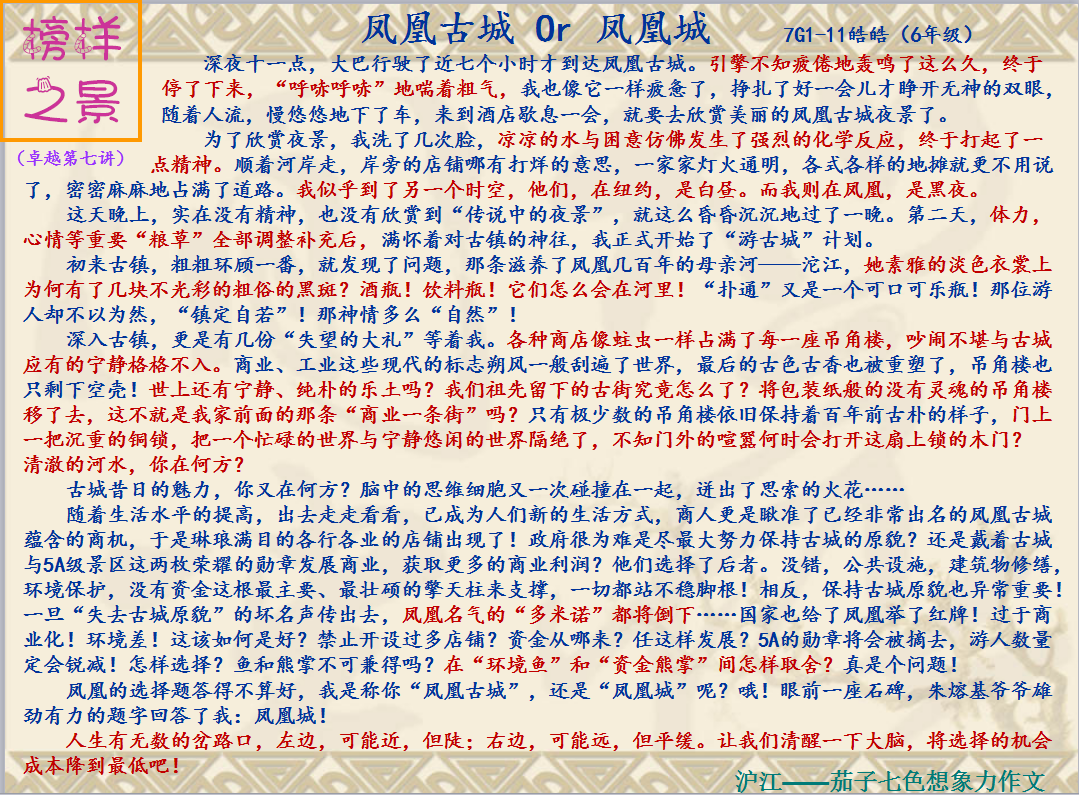 榜样
之景
凤凰古城 Or 凤凰城
7G1-11皓皓（6年级）
（卓越第七讲）
深夜十一点，大巴行驶了近七个小时才到达凤凰古城。引擎不知疲倦地轰鸣了这么久，终于
停了下来，“呼哧呼哧”地喘着粗气，我也像它一样疲惫了，挣扎了好一会儿才睁开无神的双眼，
随着人流，慢悠悠地下了车，来到酒店歇息一会，就要去欣赏美丽的凤凰古城夜景了。
为了欣赏夜景，我洗了几次脸，凉凉的水与困意仿佛发生了强烈的化学反应，终于打起了一
点精神。顺着河岸走，岸旁的店铺哪有打烊的意思，一家家灯火通明，各式各样的地摊就更不用说
了，密密麻麻地占满了道路。我似乎到了另一个时空，他们，在纽约，是白昼。而我则在凤凰，是黑夜。
这天晚上，实在没有精神，也没有欣赏到“传说中的夜景”，就这么昏昏沉沉地过了一晚。第二天，体力，
心情等重要“粮草”全部调整补充后，满怀着对古镇的神往，我正式开始了“游古城”计划。
初来古镇，粗粗环顾一番，就发现了问题，那条滋养了凤凰几百年的母亲河——沱江，她素雅的淡色衣裳上
为何有了几块不光彩的粗俗的黑斑？酒瓶！饮料瓶！它们怎么会在河里！“扑通”又是一个可口可乐瓶！那位游
人却不以为然，“镇定自若”！那神情多么“自然”！
深入古镇，更是有几份“失望的大礼”等着我。各种商店像蛀虫一样占满了每一座吊角楼，吵闹不堪与古城
应有的宁静格格不入。商业、工业这些现代的标志朔风一般刮遍了世界，最后的古色古香也被重塑了，吊角楼也
只剩下空壳！世上还有宁静、纯朴的乐土吗？我们祖先留下的古街究竟怎么了？将包装纸般的没有灵魂的吊角楼
移了去，这不就是我家前面的那条“商业一条街”吗？只有极少数的吊角楼依旧保持着百年前古朴的样子，门上
一把沉重的铜锁，把一个忙碌的世界与宁静悠闲的世界隔绝了，不知门外的喧嚣何时会打开这扇上锁的木门？
清澈的河水，你在何方？
古城昔日的魅力，你又在何方？脑中的思维细胞又一次碰撞在一起，迸出了思索的火花……
随着生活水平的提高，出去走走看看，已成为人们新的生活方式，商人更是瞅准了已经非常出名的凤凰古城
蕴含的商机，于是琳琅满目的各行各业的店铺出现了！政府很为难是尽最大努力保持古城的原貌？还是戴着古城
与5A级景区这两枚荣耀的勋章发展商业，获取更多的商业利润？他们选择了后者。没错，公共设施，建筑物修缮，
环境保护，没有资金这根最主要、最壮硕的擎天柱来支撑，一切都站不稳脚根！相反，保持古城原貌也异常重要！
一旦“失去古城原貌”的坏名声传出去，凤凰名气的“多米诺”都将倒下……国家也给了凤凰举了红牌！过于商
业化！环境差！这该如何是好？禁止开设过多店铺？资金从哪来？任这样发展？5A的勋章将会被摘去，游人数量
定会锐减！怎样选择？鱼和熊掌不可兼得吗？在“环境鱼”和“资金熊掌”间怎样取舍？真是个问题！
凤凰的选择题答得不算好，我是称你“凤凰古城”，还是“凤凰城”呢？哦！眼前一座石碑，朱熔基爷爷雄
劲有力的题字回答了我：凤凰城！
人生有无数的岔路口，左边，可能近，但陡；右边，可能远，但平缓。让我们清醒一下大脑，将选择的机会
成本降到最低吧！
沪江——茄子七色想象力作文